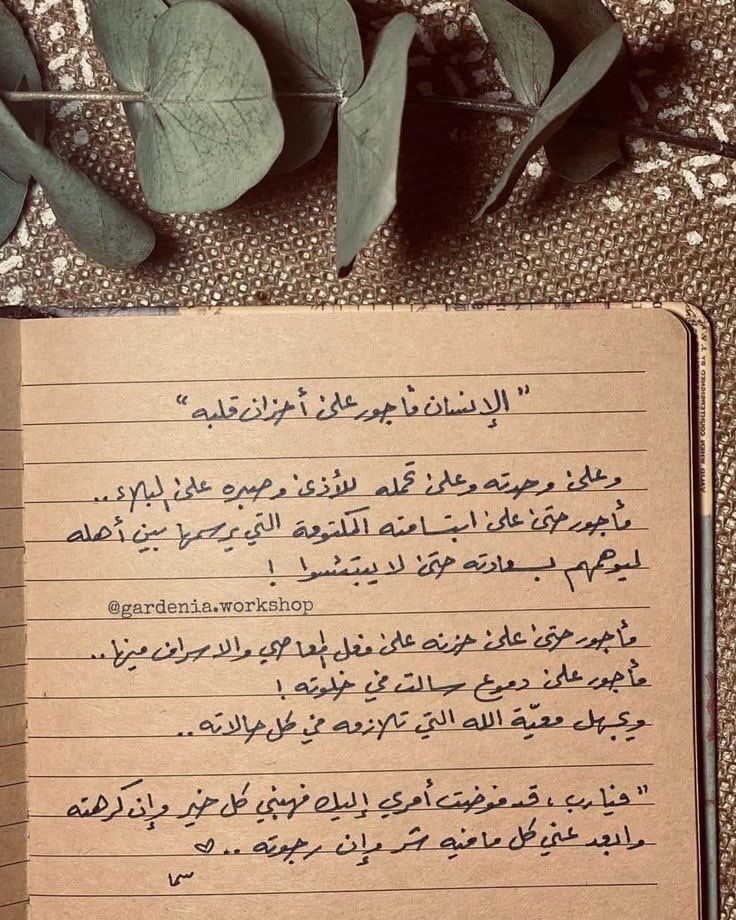 " الإنسان مأجور على أحزان قلبه "
وعلى وحدته وعلى تحمله للأذى وصبره على البلاء..
مأجور حتى على ابتسامته المكتومة التي يرسمها بين أهله
ليوهمهم بسعادته حتى لا يبتئسوا !
@gardenia.workshop
مأجور حتى على حزنه على فعل المعاصي والاسراف فيها..
مأجور على دموع سالت في خلوته !
ويجهل معيّة الله التي تلازمه في كل حالاته..
" فيارب ، قد فوضت أمري إليك فهبني كل خير وإن كرهته
وابعد عني كل ما فيه شر وإن رجوته .. ♡
سما